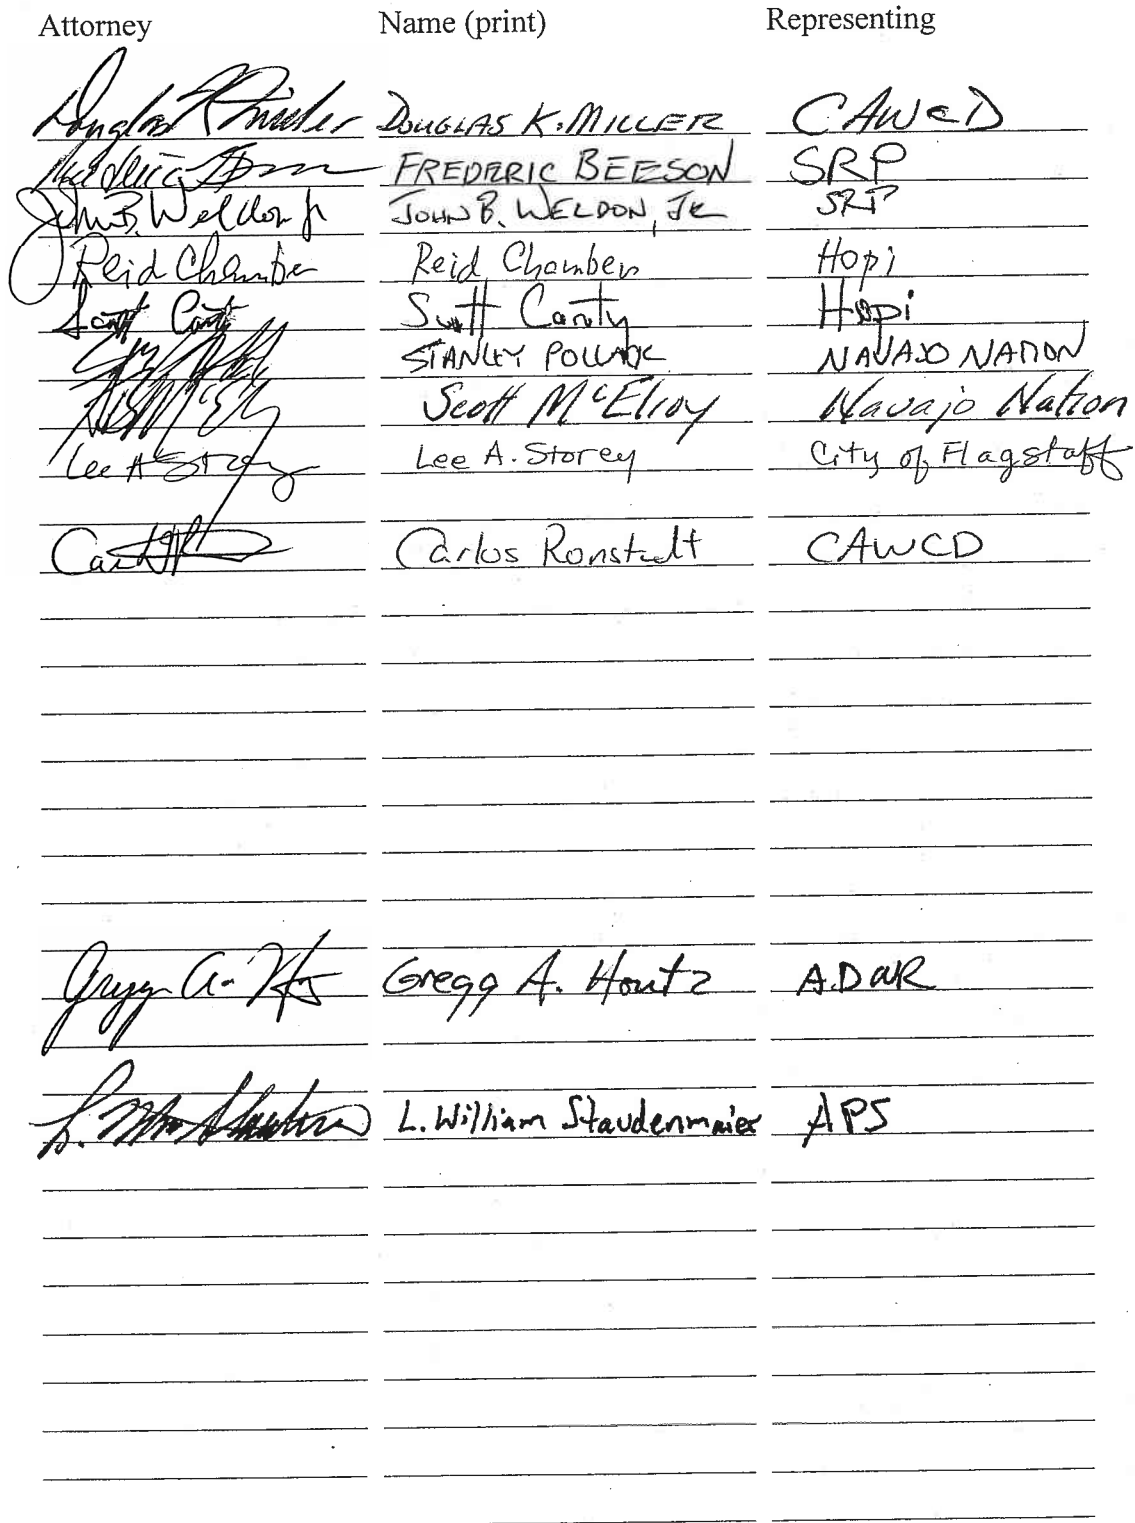 Attorney Name (print) Representing
Douglas K Miller DOUGLAS K. MILLER CAWCD
Frederic FREDERIC BEESON SRP
John B. Weldon Jr JOHN B. WELDON, JR SRP
Reid Chambers Reid Chambers Hopi
Scott Canty Scott Canty Hopi
STANLEY POLLACK NAVAJO NATION
Scott McElroy Navajo Nation
Lee A Storey Lee A. Storey City of Flagstaff
Carlos Ronstadt CAWCD
Gregg A. Gregg A. Houtz ADWR
L. Wm Staudenmaier L. William Staudenmaier APS